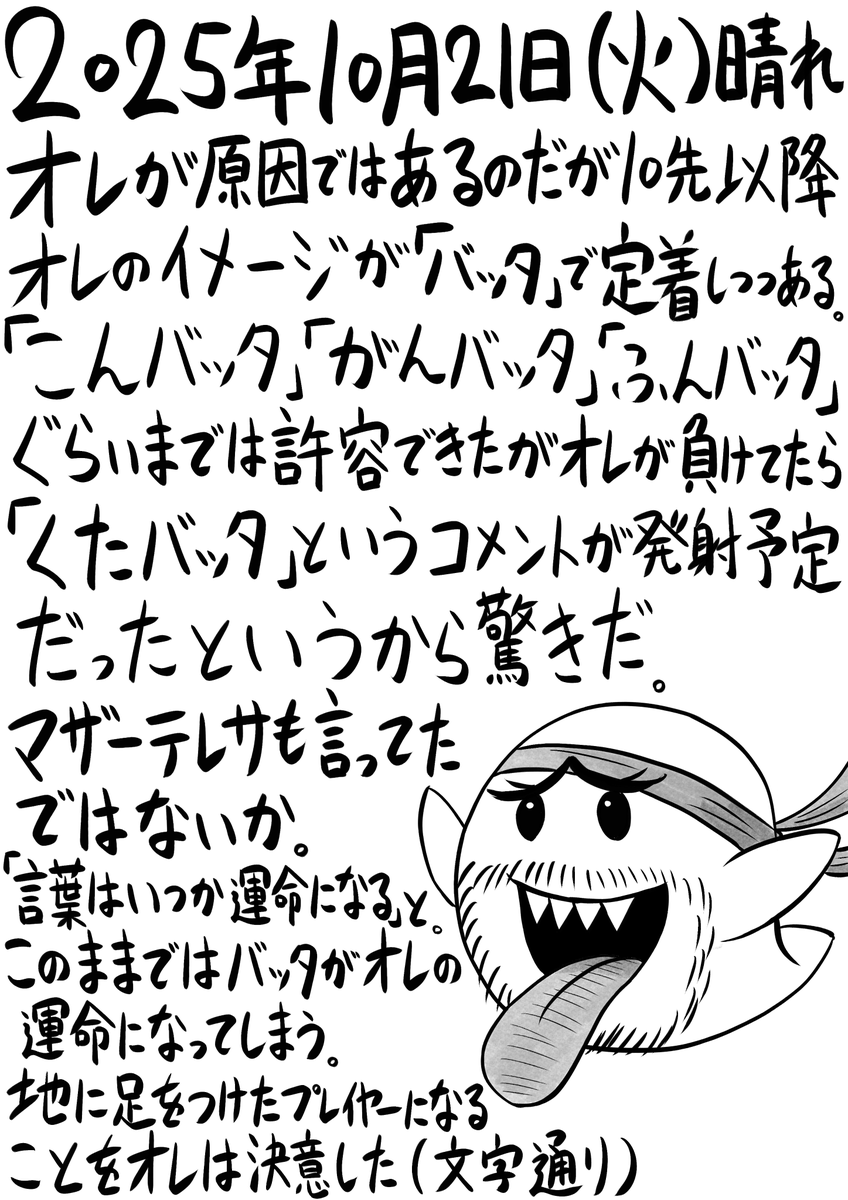 2025年10月21日(火)晴れ
オレが原因ではあるのだが10先以降
オレのイメージが「バッタ」で定着しつつある。
「こんバッタ」「がんバッタ」「ふんバッタ」
ぐらいまでは許容できたがオレが負けてたら
「くたバッタ」というコメントが発射予定
だったというから驚きだ。
マザーテレサも言ってた
ではないか。
「言葉はいつか運命になる」と。
このままではバッタがオレの
運命になってしまう。
地に足をつけたプレイヤーになる
ことをオレは決意した(文字通り)